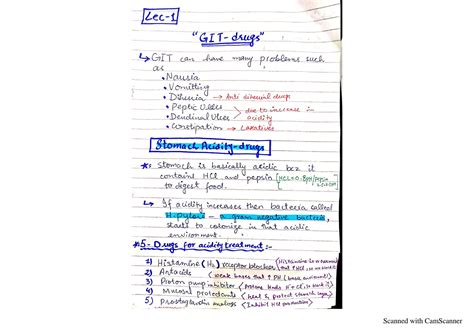 Lec-1
"GIT-drugs"
↳ GIT can have many problems such
as
• Nausia
• Vomitting
• Diherria → Anti diherrial drugs
• Peptic Ulcer
• Deudinal Ulcer } due to increase in acidity
• Constipation → Laxatives
Stomach Acidity-drugs
*: Stomach is basically acidic bcz it
containd HCl and pepsin
to digest food.
↳ If acidity increases then bacteria called
H.pylori - a gram negative bacteria,
starts to colonize in that acidic
environment.
#5-Drugs for acidity treatment:-
1) Histamine (H₂) receptor blocker
2) Antacids weak bases that ↑ PH
3) Proton pump inhibitor
4) Mucosal protectants (heal & protect stomach
5) Prostaglandin analogs (Inhibit HCl production)
Scanned with CamScanner